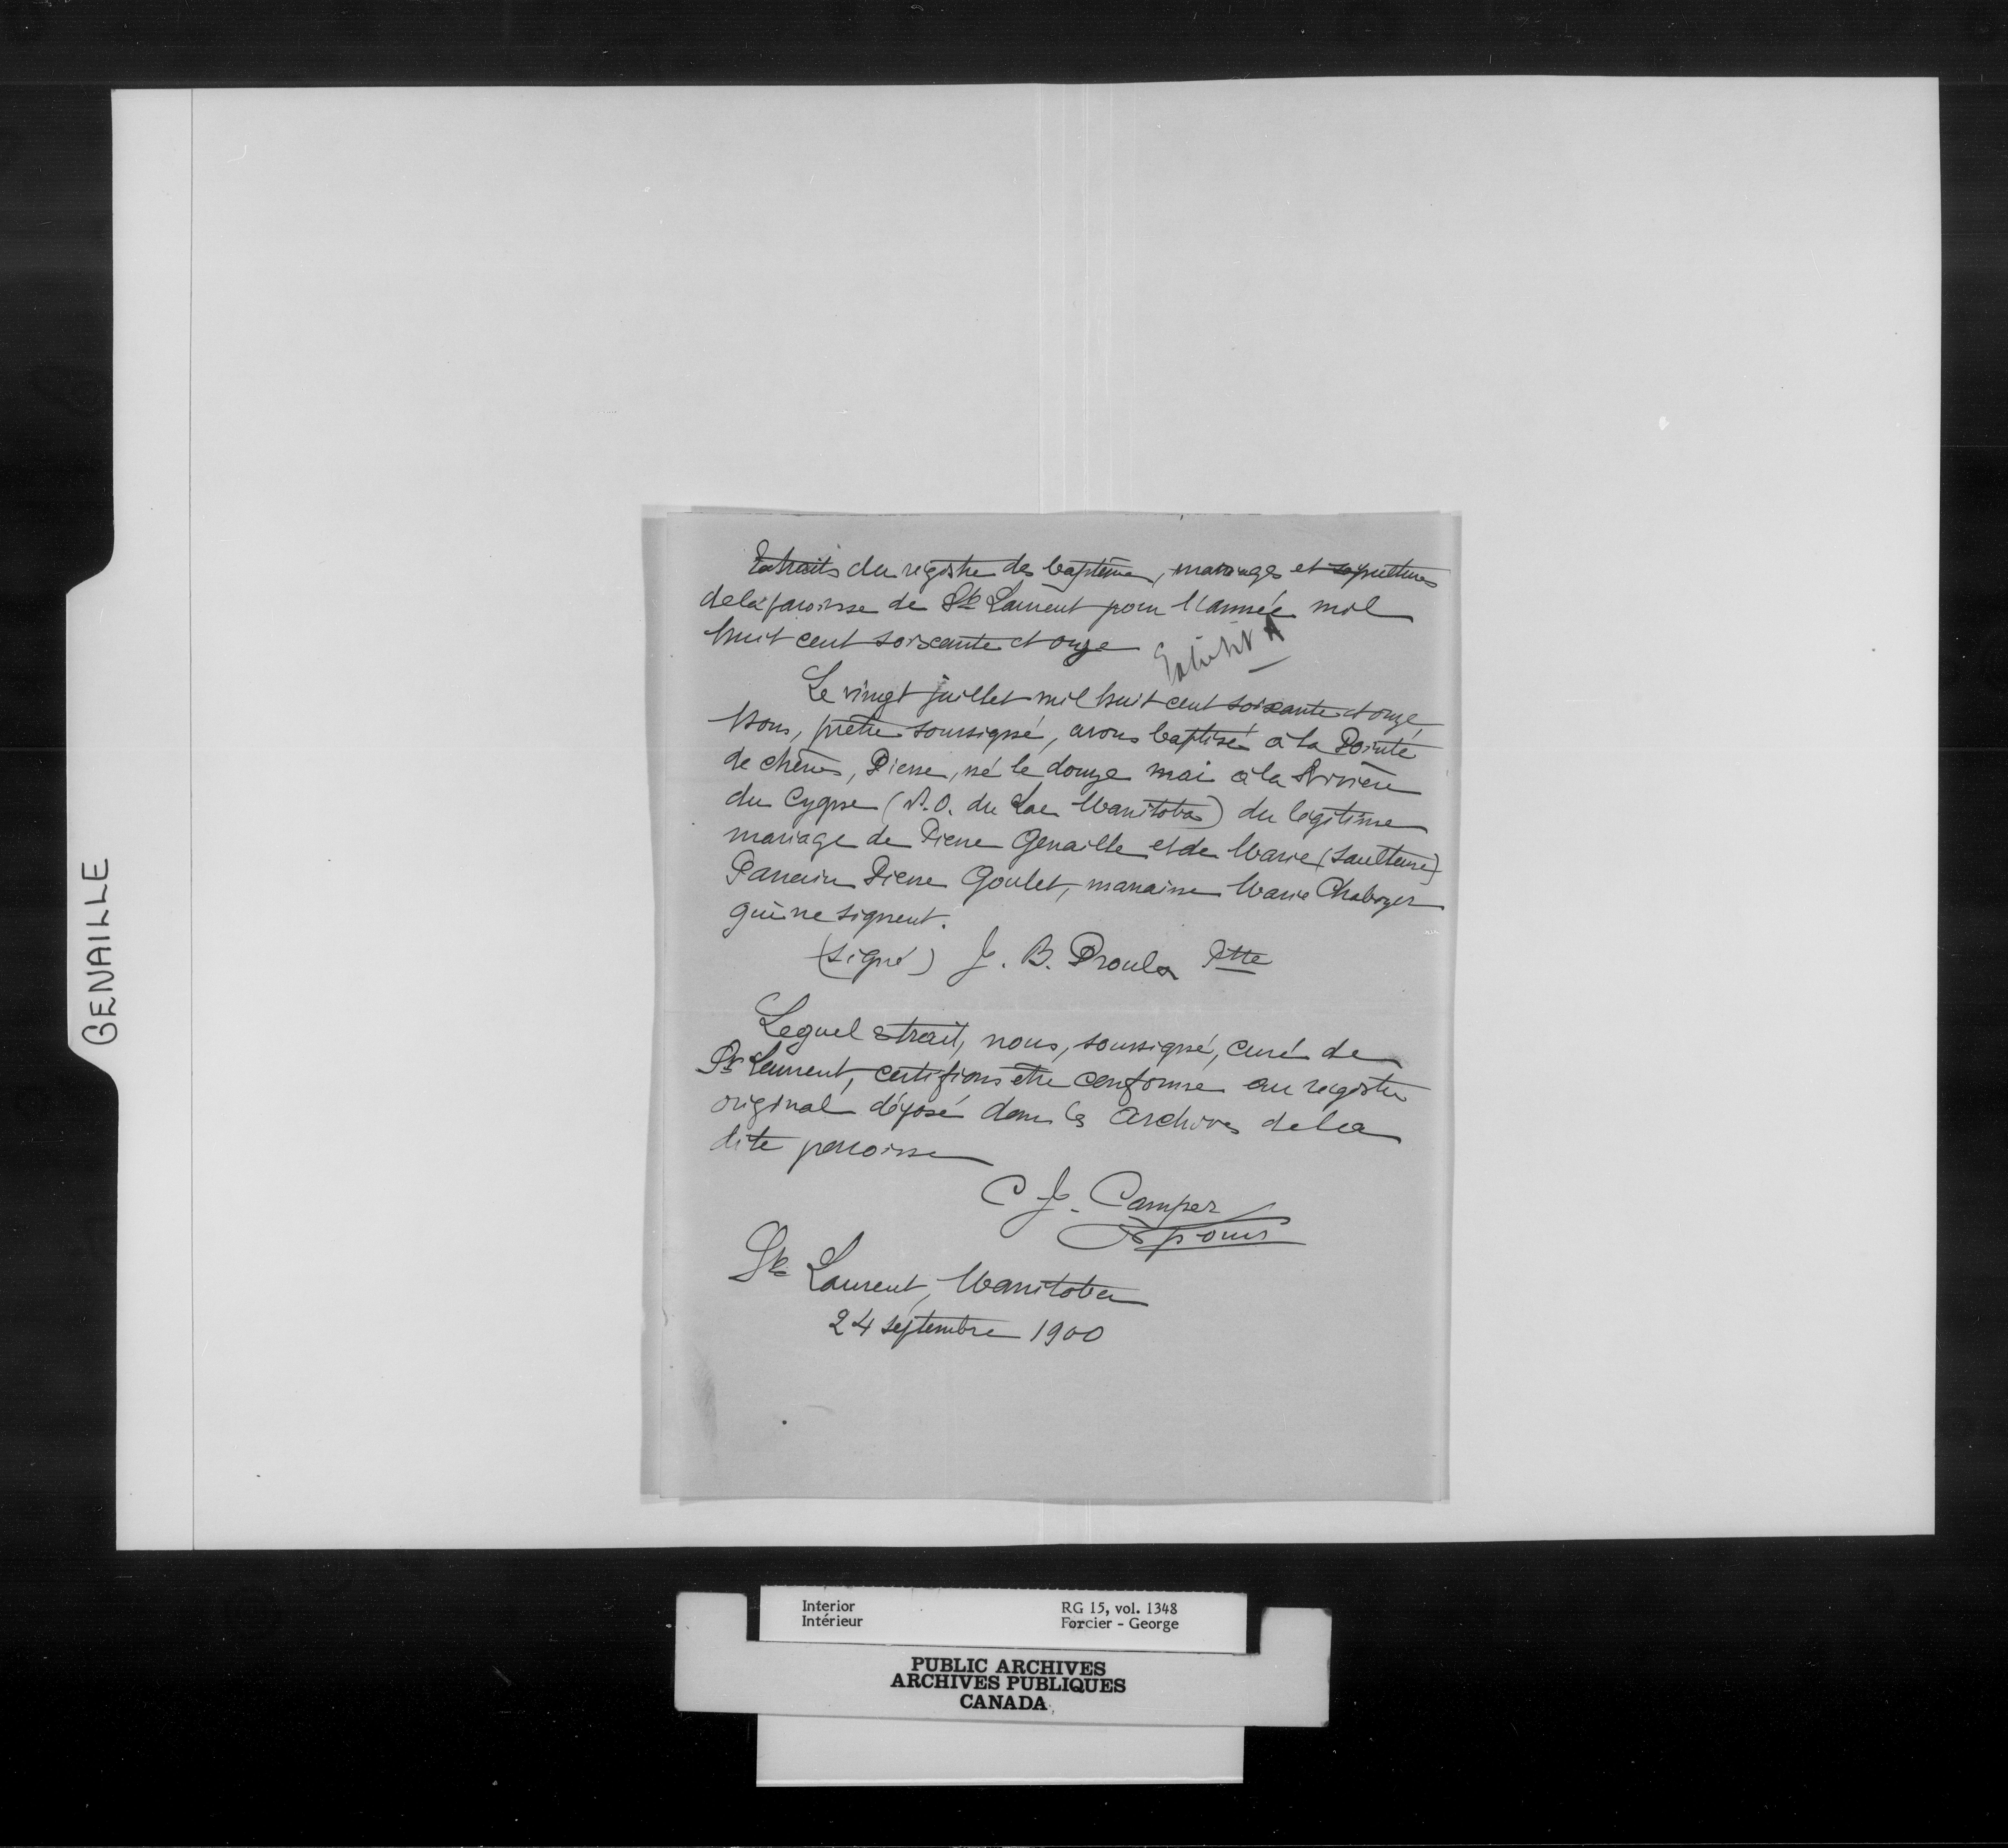 GENAILLE
Extraits du registre des baptêmes, mariages et sépultures
de la paroisse de St Laurent pour l'année mil
huit cent soixante et onze
Exhibit A
Le vingt juillet mil huit cent soixante et onze,
Nous, prêtre soussigné, avons baptisé à la Pointe
de chênes, Pierre, né le douze mai à la Rivière
du Cygne (N.O. du Lac Manitoba) du légitime
mariage de Pierre Genaille et de Marie (Saulteuse)
Parrain Pierre Goulet, marraine Marie Chaboyer
qui ne signent.
(signé) J. B. Proulx Ptre
Lequel extrait, nous, soussigné, curé de
St Laurent, certifions être conforme au registre
original déposé dans les archives de la
dite paroisse
C J. Camper
St Laurent, Manitoba
24 septembre 1900
Interior RG 15, vol. 1348
Intérieur Forcier - George
PUBLIC ARCHIVES
ARCHIVES PUBLIQUES
CANADA